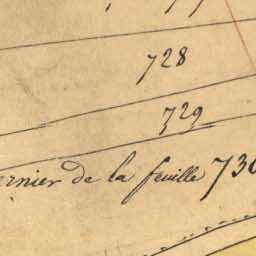 728
729
de la feuille 730